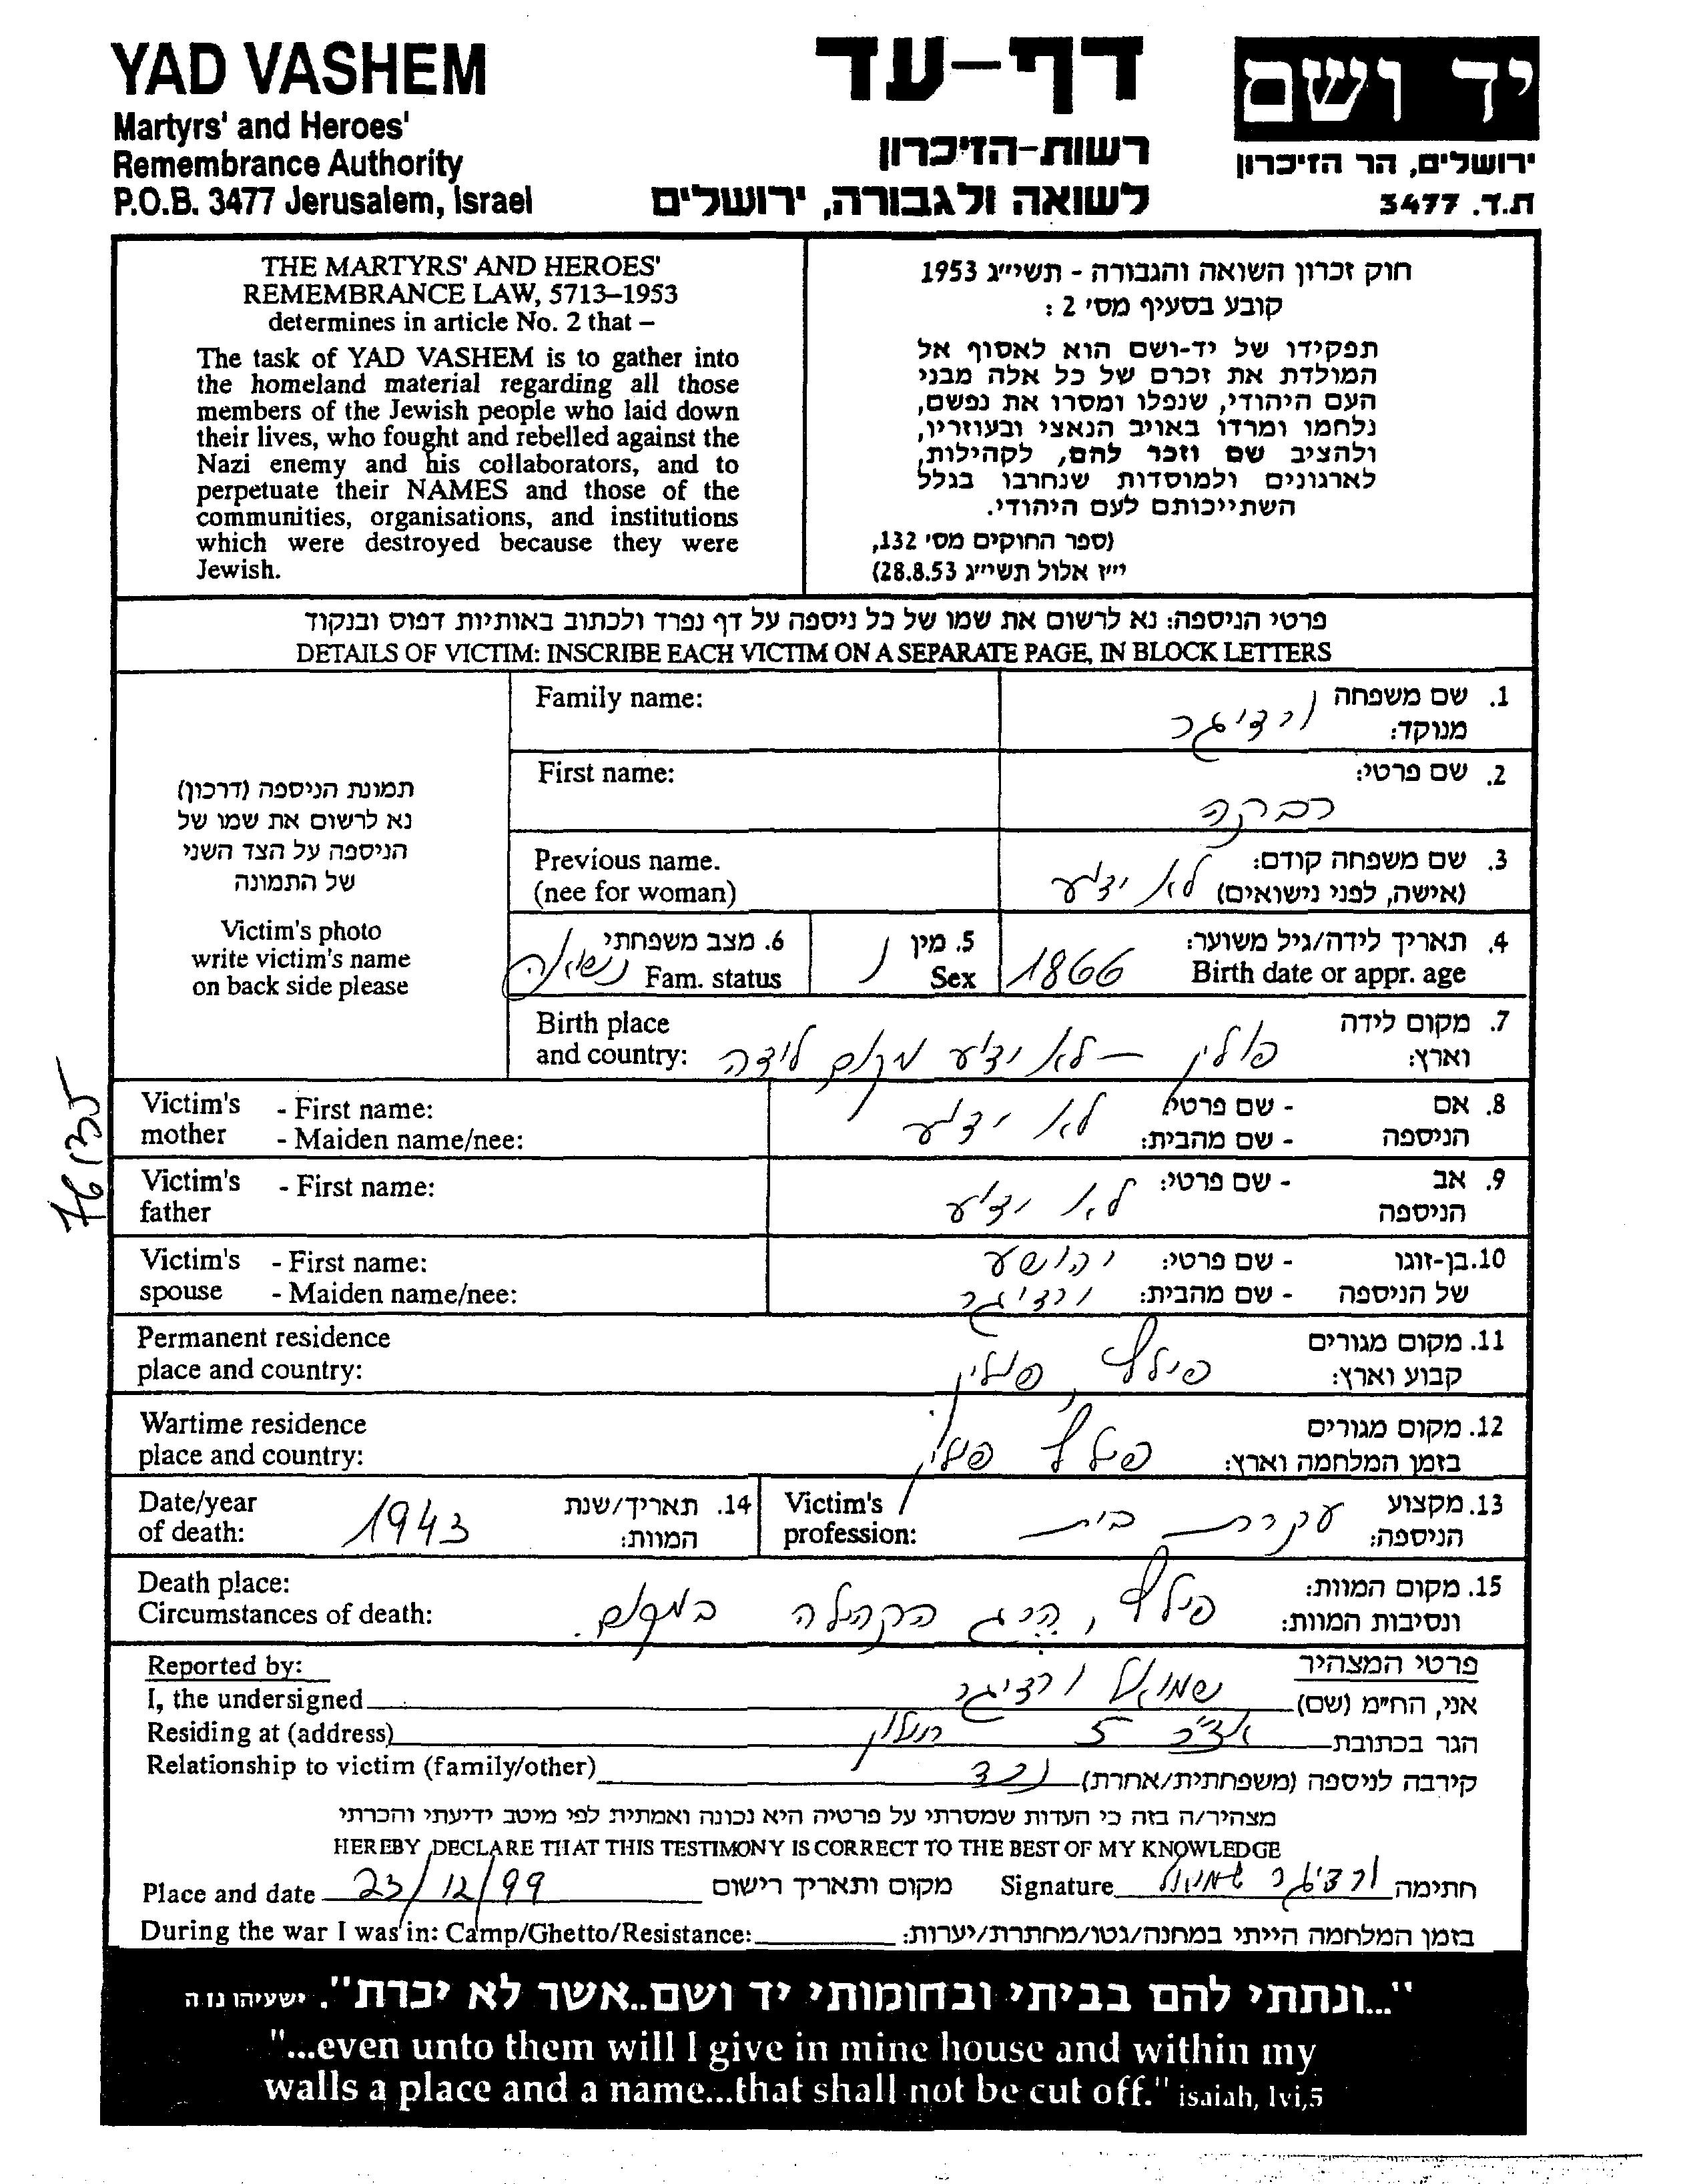 YAD VASHEM
Martyrs' and Heroes'
Remembrance Authority
P.O.B. 3477 Jerusalem, Israel
דף-עד
רשות-הזיכרון
לשואה ולגבורה, ירושלים
יד ושם
ירושלים, הר הזיכרון
ת.ד. 3477
THE MARTYRS' AND HEROES'
REMEMBRANCE LAW, 5713–1953
determines in article No. 2 that –
The task of YAD VASHEM is to gather into
the homeland material regarding all those
members of the Jewish people who laid down
their lives, who fought and rebelled against the
Nazi enemy and his collaborators, and to
perpetuate their NAMES and those of the
communities, organisations, and institutions
which were destroyed because they were
Jewish.
חוק זכרון השואה והגבורה - תשי״ג 1953
קובע בסעיף מס' 2 :
תפקידו של יד-ושם הוא לאסוף אל
המולדת את זכרם של כל אלה מבני
העם היהודי, שנפלו ומסרו את נפשם,
נלחמו ומרדו באויב הנאצי ובעוזריו,
ולהציב שם וזכר להם, לקהילות,
לארגונים ולמוסדות שנחרבו בגלל
השתייכותם לעם היהודי.
(ספר החוקים מס' 132,
י״ז אלול תשי״ג 28.8.53)
פרטי הניספה: נא לרשום את שמו של כל ניספה על דף נפרד ולכתוב באותיות דפוס ובנקוד
DETAILS OF VICTIM: INSCRIBE EACH VICTIM ON A SEPARATE PAGE, IN BLOCK LETTERS
תמונת הניספה (דרכון)
נא לרשום את שמו של
הניספה על הצד השני
של התמונה
Victim's photo
write victim's name
on back side please
Family name:
1. שם משפחה
מנוקד: ורציגר
First name:
2. שם פרטי:
רבקה
Previous name.
(nee for woman)
3. שם משפחה קודם:
(אישה, לפני נישואים) לא ידוע
4. תאריך לידה/גיל משוער:
Birth date or appr. age 1866
5. מין
Sex נ
6. מצב משפחתי
Fam. status נשואה
Birth place
and country:
7. מקום לידה
וארץ: פולין — לא ידוע מקום לידה
Victim's - First name:
mother - Maiden name/nee:
8. אם - שם פרטי:
הניספה - שם מהבית: לא ידוע
Victim's - First name:
father
9. אב - שם פרטי: לא ידוע
הניספה
Victim's - First name:
spouse - Maiden name/nee:
10. בן-זוגו - שם פרטי: יהושע
של הניספה - שם מהבית: ורציגר
Permanent residence
place and country:
11. מקום מגורים
קבוע וארץ: פילץ, פולין
Wartime residence
place and country:
12. מקום מגורים
בזמן המלחמה וארץ: פילץ פולין
13. מקצוע
הניספה: עקרת בית
Victim's
profession:
14. תאריך/שנת
המוות: 1943
Date/year
of death:
Death place:
Circumstances of death:
15. מקום המוות:
ונסיבות המוות: פילץ, הרג הקהילה במקום.
Reported by:
פרטי המצהיר
I, the undersigned
אני, הח״מ (שם) שמואל ורציגר
Residing at (address)
הגר בכתובת אצ״ל 5 חולון
Relationship to victim (family/other)
קירבה לניספה (משפחתית/אחרת) נכד
מצהיר/ה בזה כי העדות שמסרתי על פרטיה היא נכונה ואמתית לפי מיטב ידיעתי והכרתי
HEREBY DECLARE THAT THIS TESTIMONY IS CORRECT TO THE BEST OF MY KNOWLEDGE
Place and date 23/12/99 מקום ותאריך רישום Signature ורציגר שמואל חתימה
During the war I was in: Camp/Ghetto/Resistance: בזמן המלחמה הייתי במחנה/גטו/מחתרת/יערות:
"...ונתתי להם בביתי ובחומותי יד ושם..אשר לא יכרת". ישעיהו נו ה
"...even unto them will I give in mine house and within my
walls a place and a name...that shall not be cut off." isaiah, lvi,5